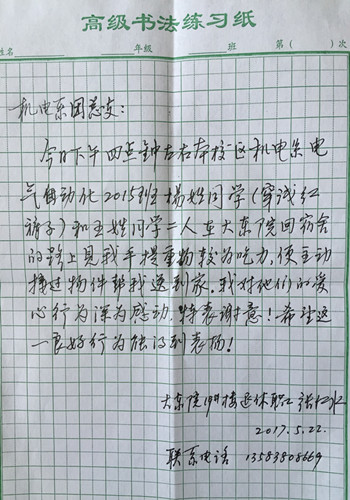 高级书法练习纸
姓名 年级 班 第( )次
机电系团总支:
今日下午四点钟左右本校区机电系电
气自动化2015班杨姓同学(穿浅红
裤子)和王姓同学二人在大东院回宿舍
的路上见我手提重物较为吃力,便主动
接过物件帮我送到家。我对他们的爱
心行为深为感动,特表谢意!希望这
一良好行为能得到表扬!
大东院 楼退休职工 张
2017.5.22.
联系电话 13583808669